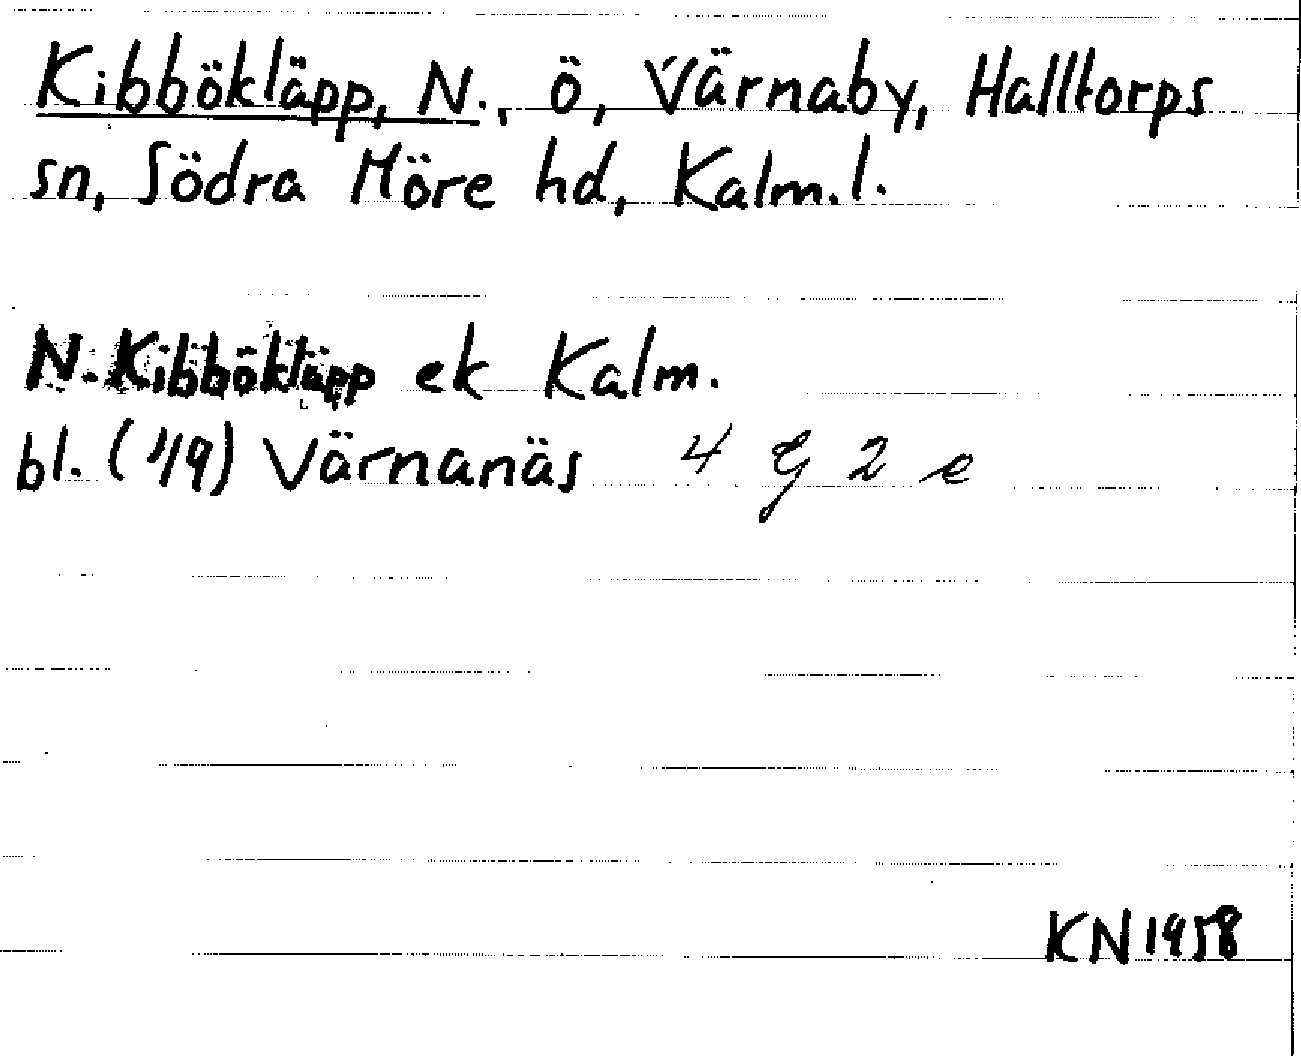 Kibbökläpp, N., ö, Värnaby, Halltorps
sn, Södra Möre hd, Kalm.l.
N. Kibbökläpp ek Kalm.
bl. (1/9) Värnanäs 4 G 2 e
KN 1958